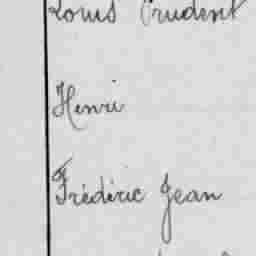 Louis Prudent
Henri
Frédéric Jean